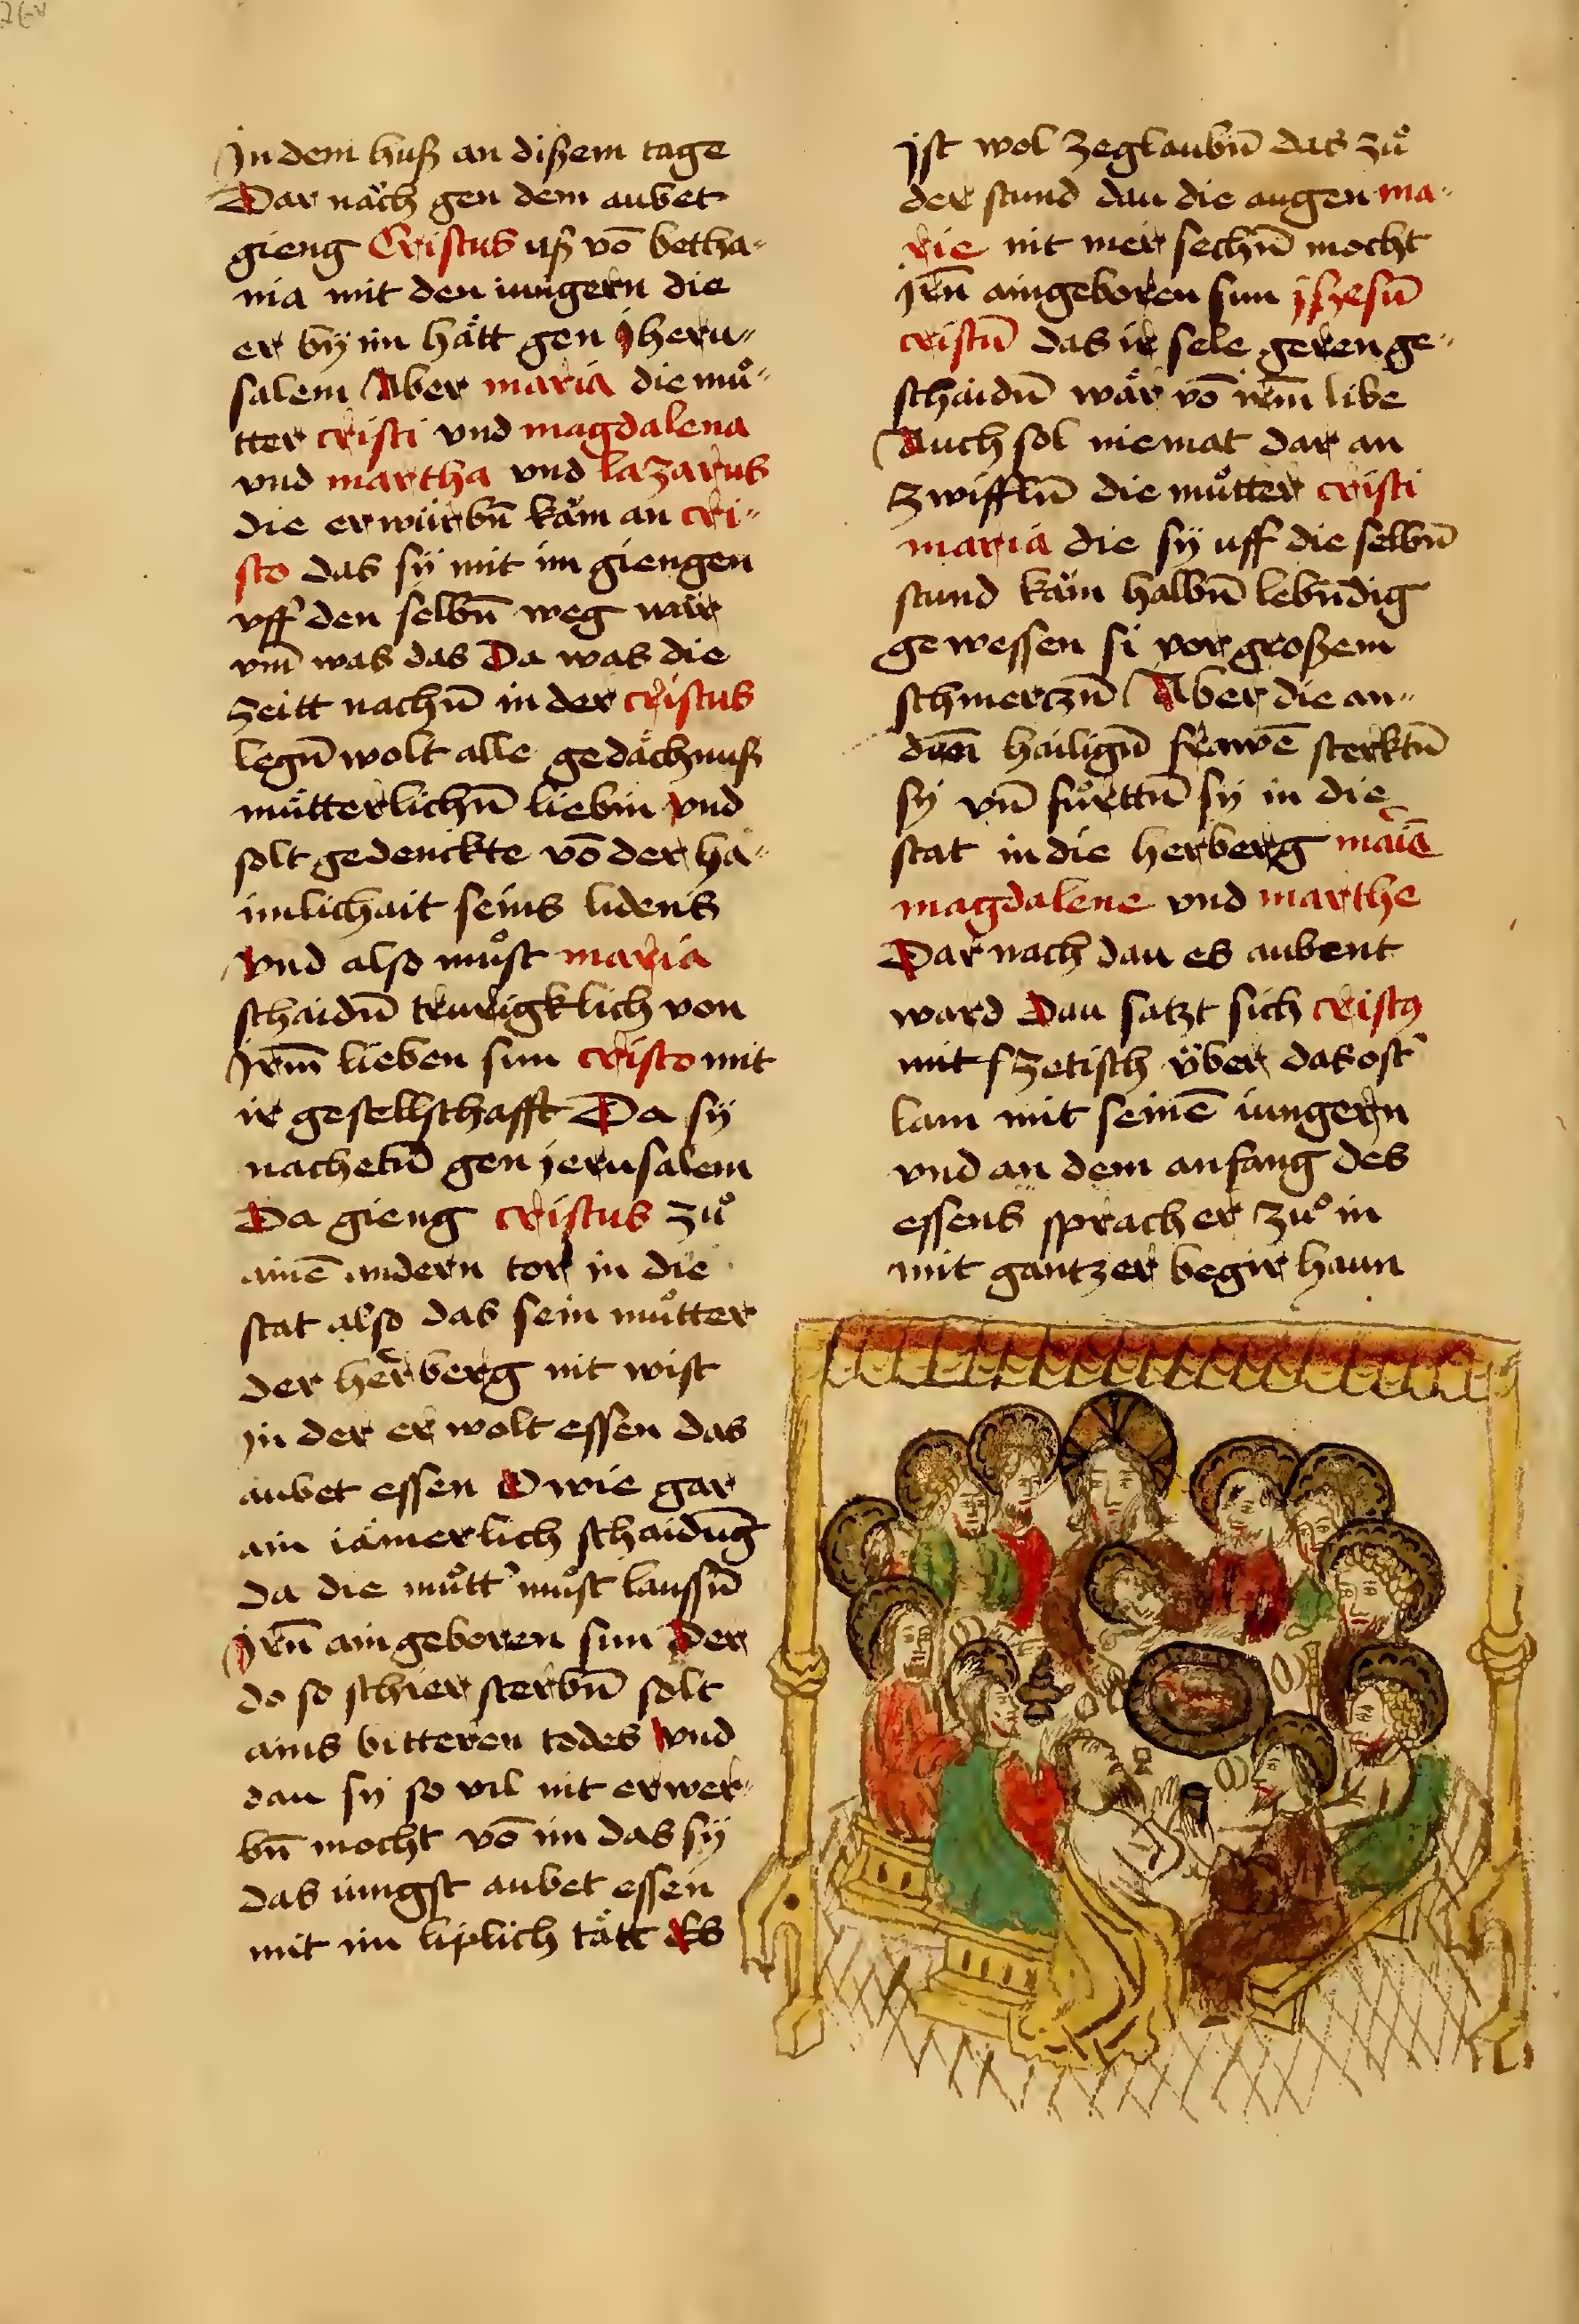 Jn dem huß an dißem tage
Dar nǎch gen dem aubet
gieng Cristus uß vō betha-
nia mit den iungern die
er bÿ im hått gen jheru-
salem Aber maria die mů-
tter cristi vnd magdalena
vnd martha vnd lazarus
die erwürbn̄ kåm an cri-
sto das sÿ mit im giengen
vff den selbn̄ weg
vm̄ was das Da was die
zeitt nachn̄ in der cristus
legn̄ wolt alle gedåchnuß
mütterlichn̄ liebin vnd
solt gedenckte vō der ha-
imlichait seins lidens
vnd also můst maria
schaidn̄ trurigklich von
Jrm̄ lieben sun cristo mit
ir gesellschafft Da sÿ
nachetn̄ gen jerusalem
Da gieng cristus zů
ainē andern tor in die
stat also das sein můtter
der herberg nit wist
in der er wolt essen das
aubet essen O wie gar
ain iåmerlich schaidūg
da die můtt' můst laussn̄
Jrn̄ ain geboren sun Der
do so schier sterbn̄ solt
ains bitteren todes vnd
dau sÿ so vil nit erwer-
bn̄ mocht vō im das sÿ
das iungst aubet essen
mit im liplich tått Es
jst wol zeglaubn̄ das zů
der stund dau die augen ma-
rie nit mer sechn̄ mocht
jrn̄ aingeboren sun jhesū
cristū das ir sele geren ge-
schaidn̄ wår vō irm̄ libe
Auch sol niemat dar an
zwiffln̄ die můtter cristi
maria die sÿ uff die selbn̄
stund kåm halbn̄ lebn̄dig
gewessen si vor großem
schmerczn̄ Aber die an-
dn̄ hailign̄ frawē sterktn̄
sÿ vn̄ fůrttn̄ sÿ in die
stat in die herberg maīā
magdalene vnd marthe
Dar nach dau es aubent
ward Dau satzt sich cristꝰ
mit f zetisch über das ost'
lam mit seinē iungern
vnd an dem anfang des
essens sprach er zů in
mit gantzer begir haun